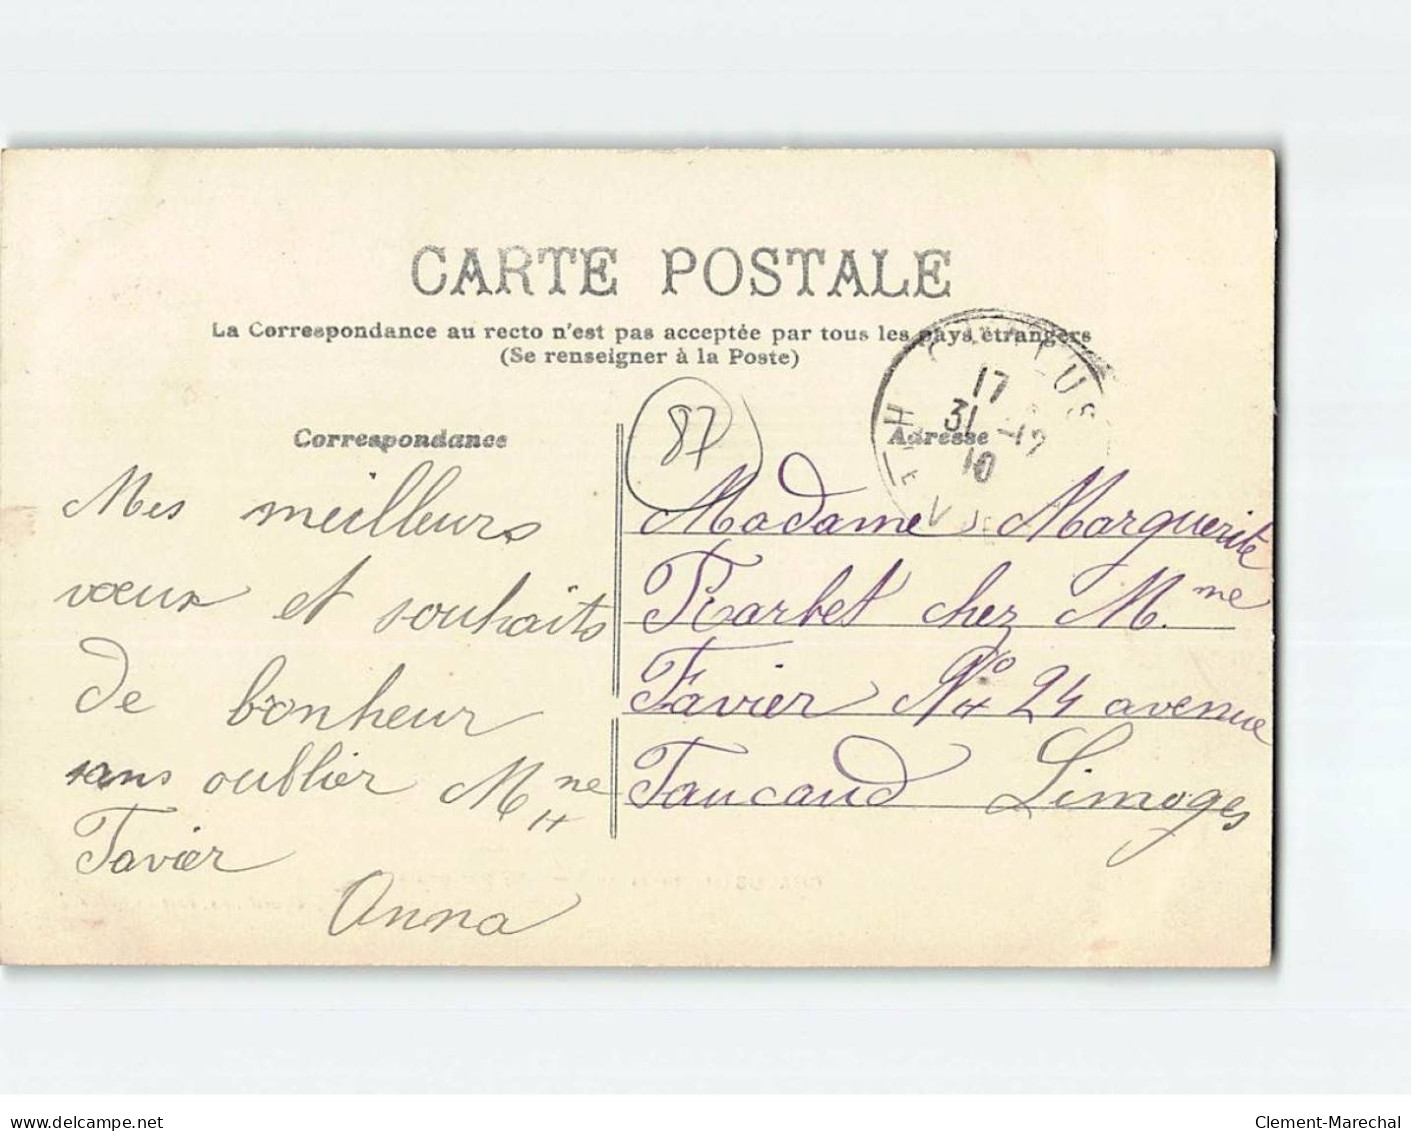 CARTE POSTALE
La Correspondance au recto n'est pas acceptée par tous les pays étrangers
(Se renseigner à la Poste)
CHALUS
17
31 -12
10
Hte V
87
Correspondance
Adresse
Mes meilleurs
vœux et souhaits
de bonheur
sans oublier Mme
Favier
Anna
Madame Marguerite
chez Mme
Favier No 24 avenue
Faucaud Limoges
www.delcampe.net
Clement-Marechal